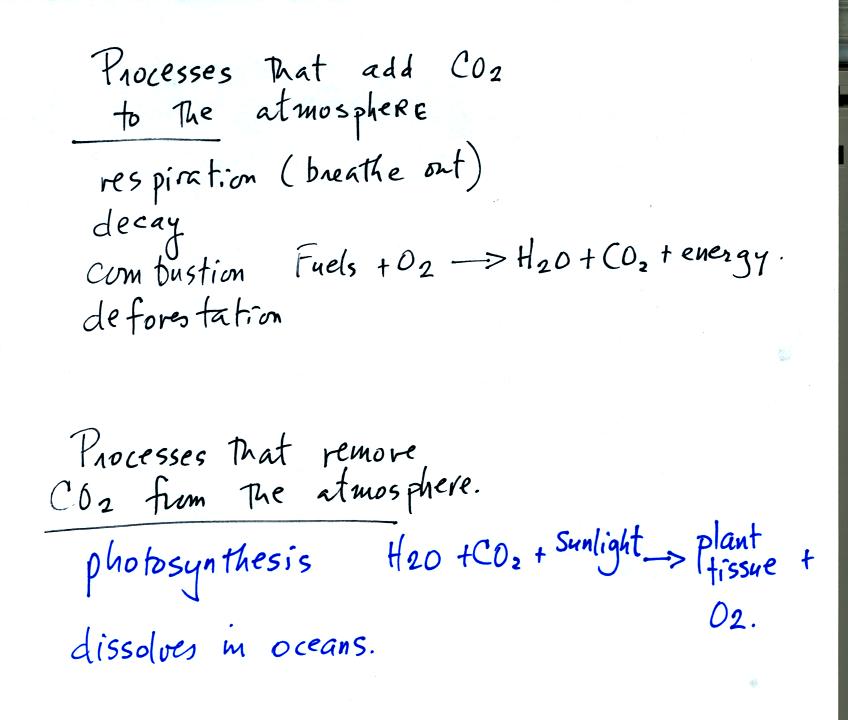 Processes that add CO2
to the atmosphere
respiration (breathe out)
decay
combustion Fuels + O2 → H2O + CO2 + energy.
deforestation
Processes that remove
CO2 from the atmosphere.
photosynthesis H2O + CO2 + Sunlight → plant tissue +
O2.
dissolves in oceans.